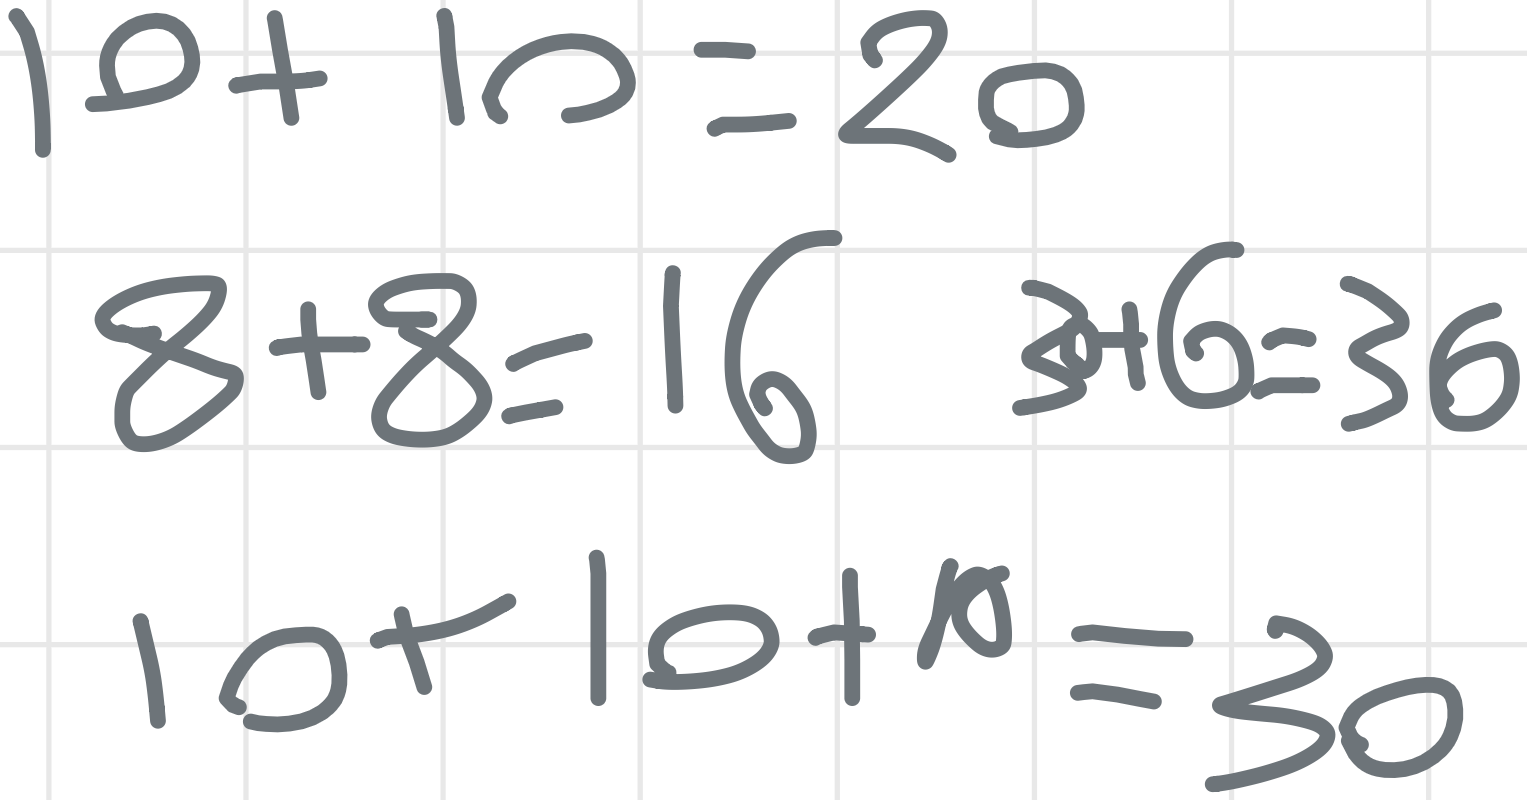 10+10=20
8+8=16 30+6=36
10+10+10=30